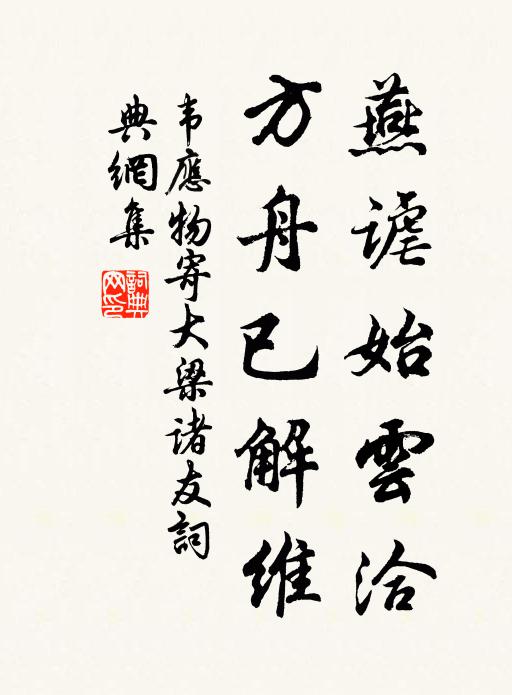 燕謔始雲洽
方舟已解維
韦應物寄大梁诸友詞
典網集
詞典网印